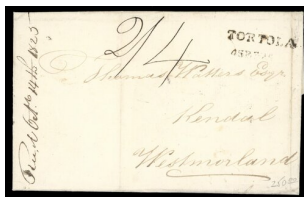 2/4
TORTOLA
Thomas Wilters Esqr
Kendal
Westmorland
Recd Octr 14th 1825